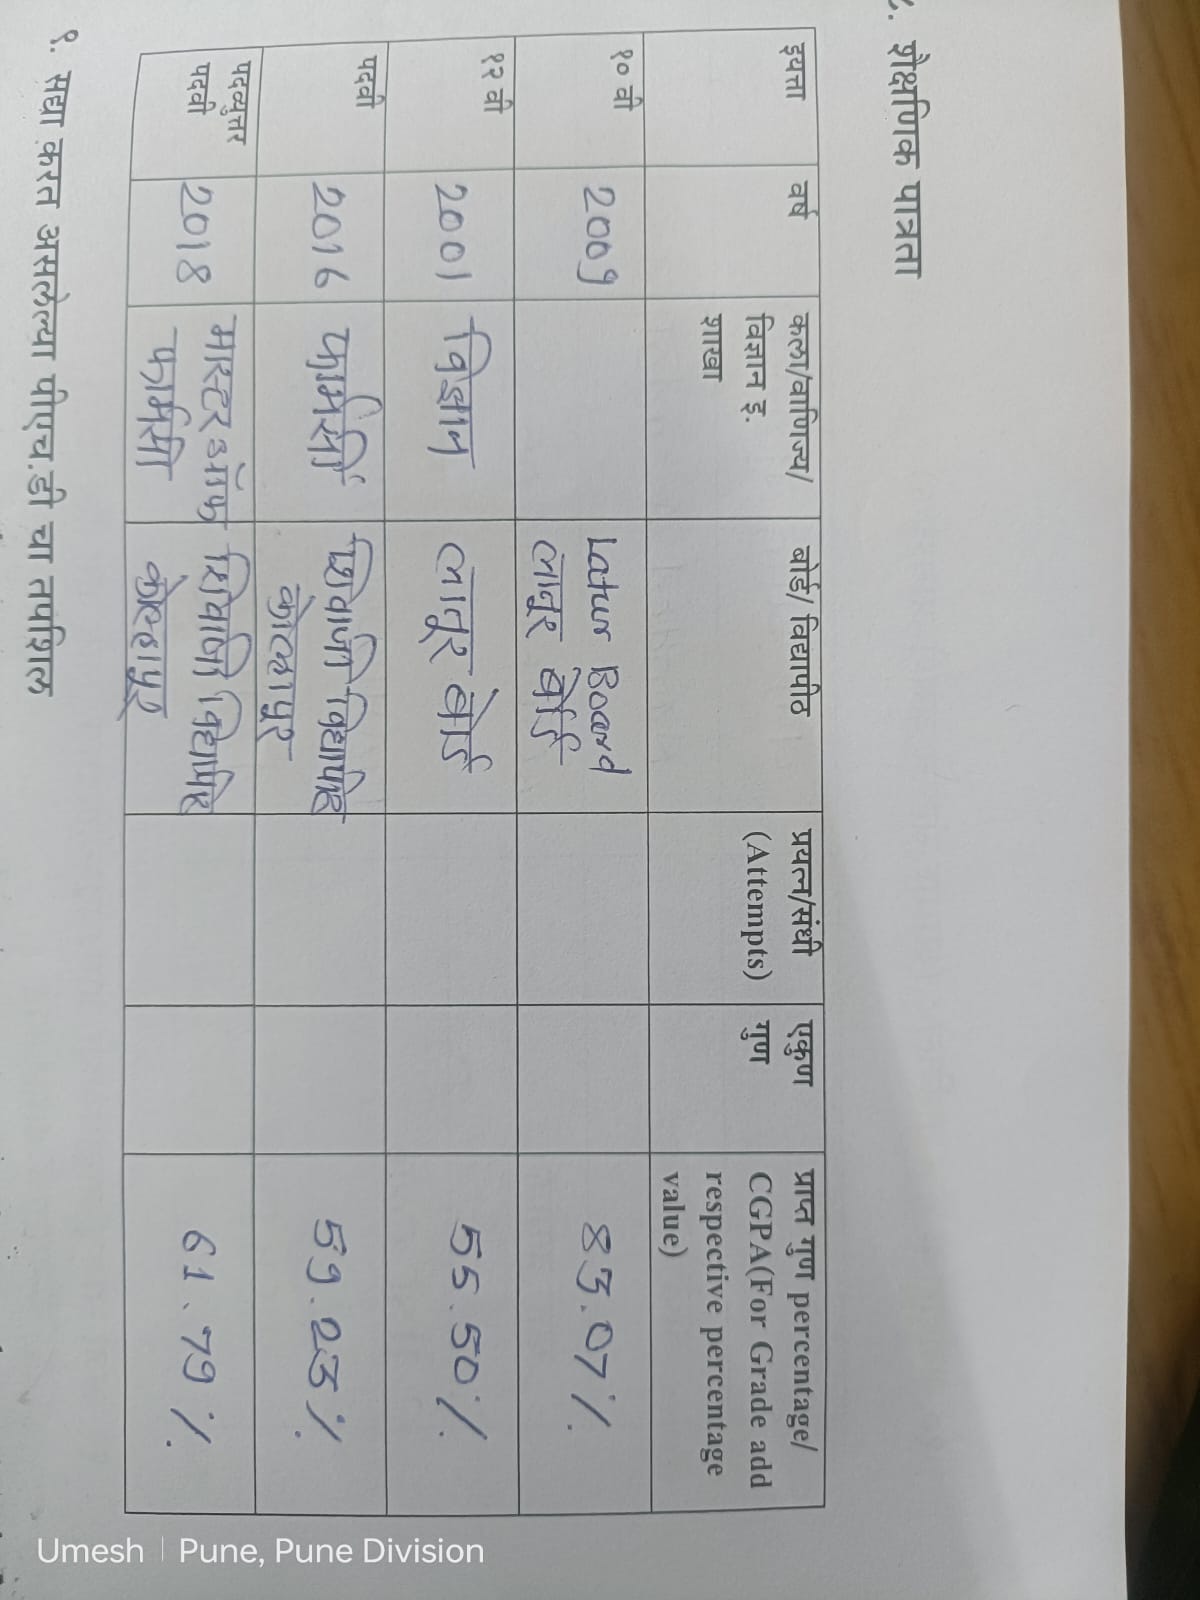 ८. शैक्षणिक पात्रता
इयत्ता
वर्ष
कला/वाणिज्य/
विज्ञान इ.
शाखा
बोर्ड/ विद्यापीठ
प्रयत्न/संधी
(Attempts)
एकुण
गुण
प्राप्त गुण percentage/
CGPA(For Grade add
respective percentage
value)
१० वी
2009
Latur Board
लातूर बोर्ड
83.07%
१२ वी
2001
विज्ञान
लातूर बोर्ड
55.50%
पदवी
2016
फार्मसी
शिवाजी विद्यापीठ
कोल्हापूर
59.23%
पदव्युत्तर
पदवी
2018
मास्टर ऑफ
फार्मसी
शिवाजी विद्यापीठ
कोल्हापूर
61.79%
९. सद्या करत असलेल्या पीएच.डी चा तपशिल
Umesh | Pune, Pune Division